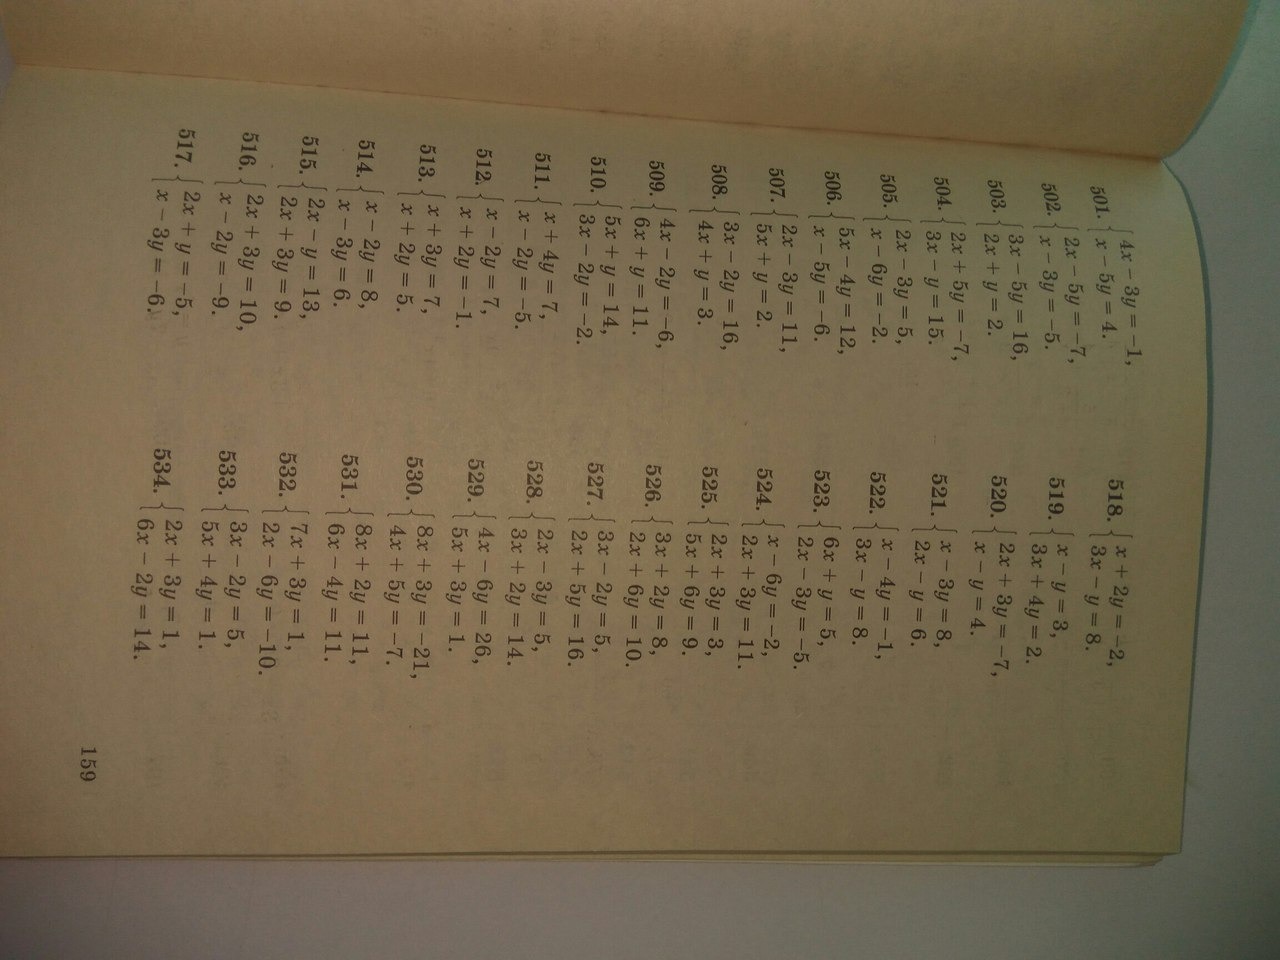 501. { 4x − 3y = −1,
x − 5y = 4.
502. { 2x − 5y = −7,
x − 3y = −5.
503. { 3x − 5y = 16,
2x + y = 2.
504. { 2x + 5y = −7,
3x − y = 15.
505. { 2x − 3y = 5,
x − 6y = −2.
506. { 5x − 4y = 12,
x − 5y = −6.
507. { 2x − 3y = 11,
5x + y = 2.
508. { 3x − 2y = 16,
4x + y = 3.
509. { 4x − 2y = −6,
6x + y = 11.
510. { 5x + y = 14,
3x − 2y = −2.
511. { x + 4y = 7,
x − 2y = −5.
512. { x − 2y = 7,
x + 2y = −1.
513. { x + 3y = 7,
x + 2y = 5.
514. { x − 2y = 8,
x − 3y = 6.
515. { 2x − y = 13,
2x + 3y = 9.
516. { 2x + 3y = 10,
x − 2y = −9.
517. { 2x + y = −5,
x − 3y = −6.
518. { x + 2y = −2,
3x − y = 8.
519. { x − y = 3,
3x + 4y = 2.
520. { 2x + 3y = −7,
x − y = 4.
521. { x − 3y = 8,
2x − y = 6.
522. { x − 4y = −1,
3x − y = 8.
523. { 6x + y = 5,
2x − 3y = −5.
524. { x − 6y = −2,
2x + 3y = 11.
525. { 2x + 3y = 3,
5x + 6y = 9.
526. { 3x + 2y = 8,
2x + 6y = 10.
527. { 3x − 2y = 5,
2x + 5y = 16.
528. { 2x − 3y = 5,
3x + 2y = 14.
529. { 4x − 6y = 26,
5x + 3y = 1.
530. { 8x + 3y = −21,
4x + 5y = −7.
531. { 8x + 2y = 11,
6x − 4y = 11.
532. { 7x + 3y = 1,
2x − 6y = −10.
533. { 3x − 2y = 5,
5x + 4y = 1.
534. { 2x + 3y = 1,
6x − 2y = 14.
159